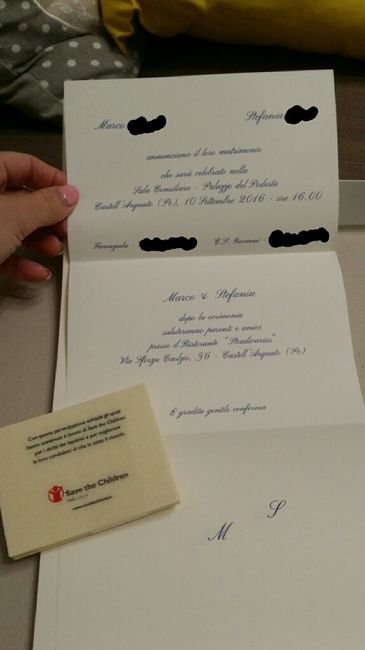 Marco Stefania
annunciano il loro matrimonio
che sarà celebrato nella
Sala Consiliare - Palazzo del Podestà
Castell'Arquato (Pc), 10 Settembre 2016 - ore 16.00
C.S. Giovanni -
Marco & Stefania
dopo la cerimonia
saluteranno parenti e amici
presso il Ristorante "Stradivarius"
Via Sforza Caolzio, 36 - Castell'Arquato (Pc)
È gradita gentile conferma
M S
Con questa partecipazione solidale gli sposi
hanno sostenuto il lavoro di Save the Children
per i diritti dei bambini e per migliorare
le loro condizioni di vita in tutto il mondo.
Save the Children